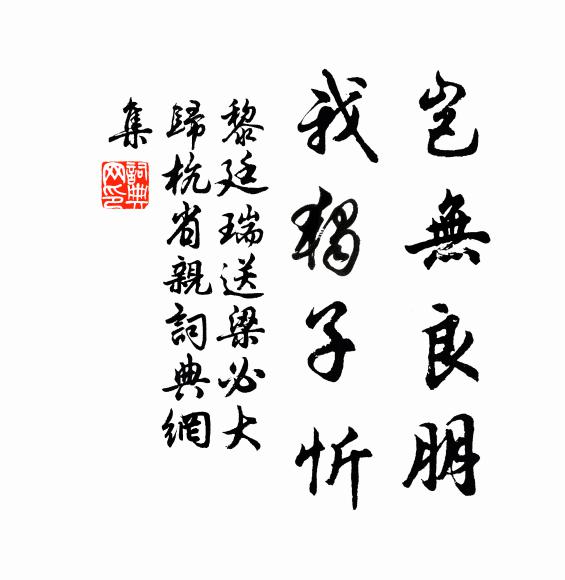 豈無良朋
我獨子忻
黎廷瑞送梁必大
歸杭省親詞典網
集
詞典網印